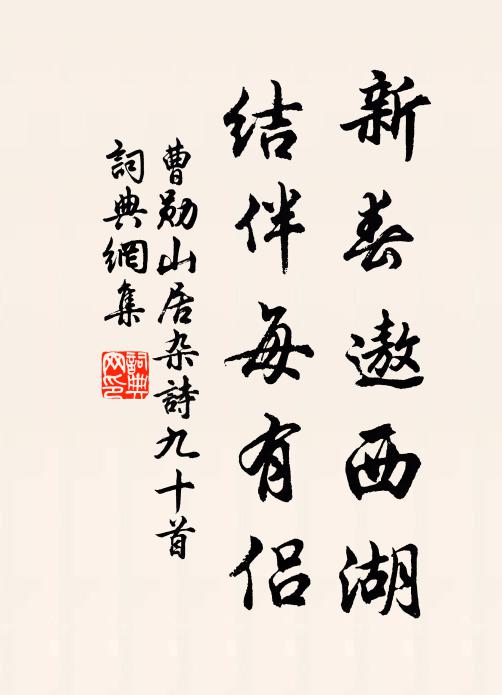 新春遨西湖
结伴每有侣
曹勋山居杂詩九十首
詞典網集
詞典网印